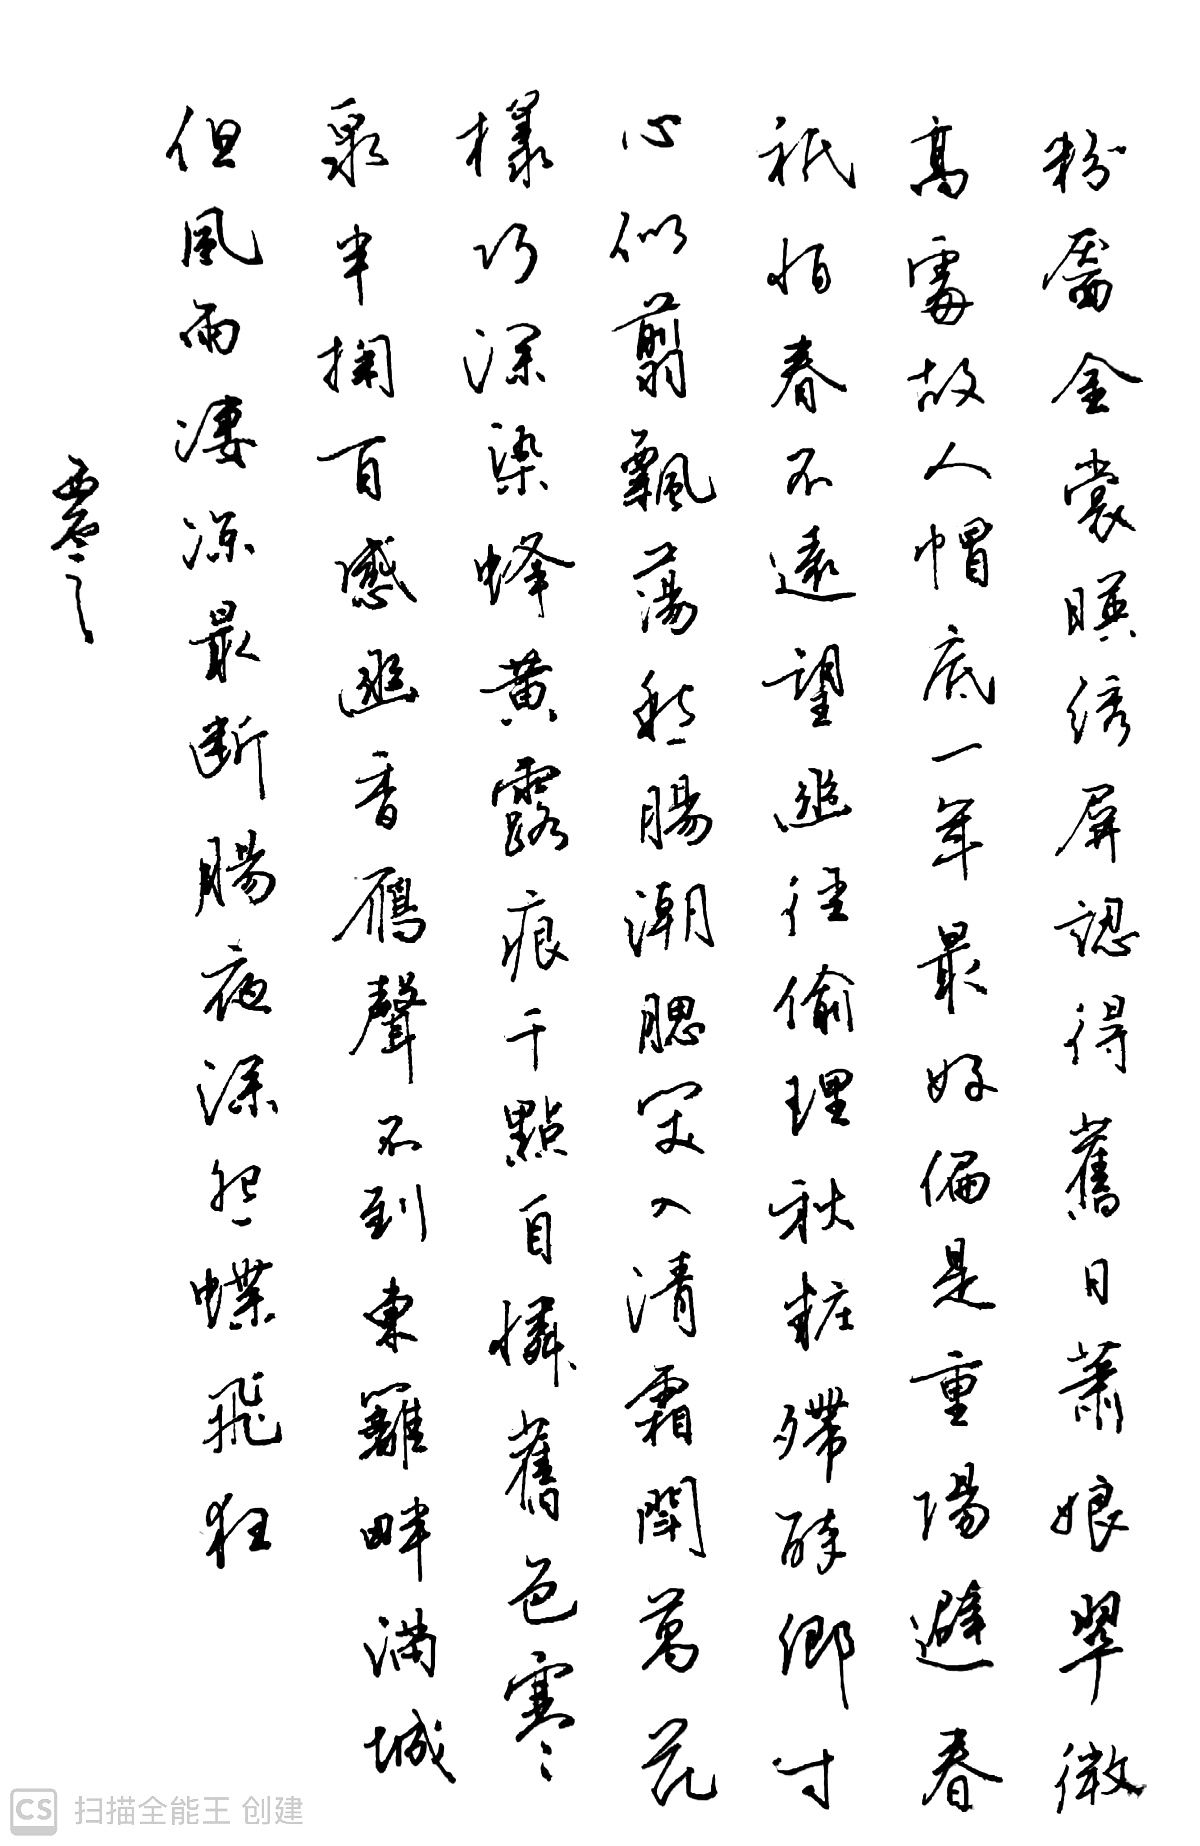 粉靨金裳映绣屏認得舊日蕭娘翠微
高處故人帽底一年最好偏是重陽避春
祇怕春不遠望幽徑偷理秋粧殢醉鄉寸
心似翦飄蕩愁腸潮腮笑入清霜鬥萬花
樣巧深染蜂黃露痕千點自憐舊色寒
泉半掬百感幽香雁聲不到東籬畔滿城
但風雨淒凉最断腸夜深怨蝶飛狂
CS 扫描全能王 创建